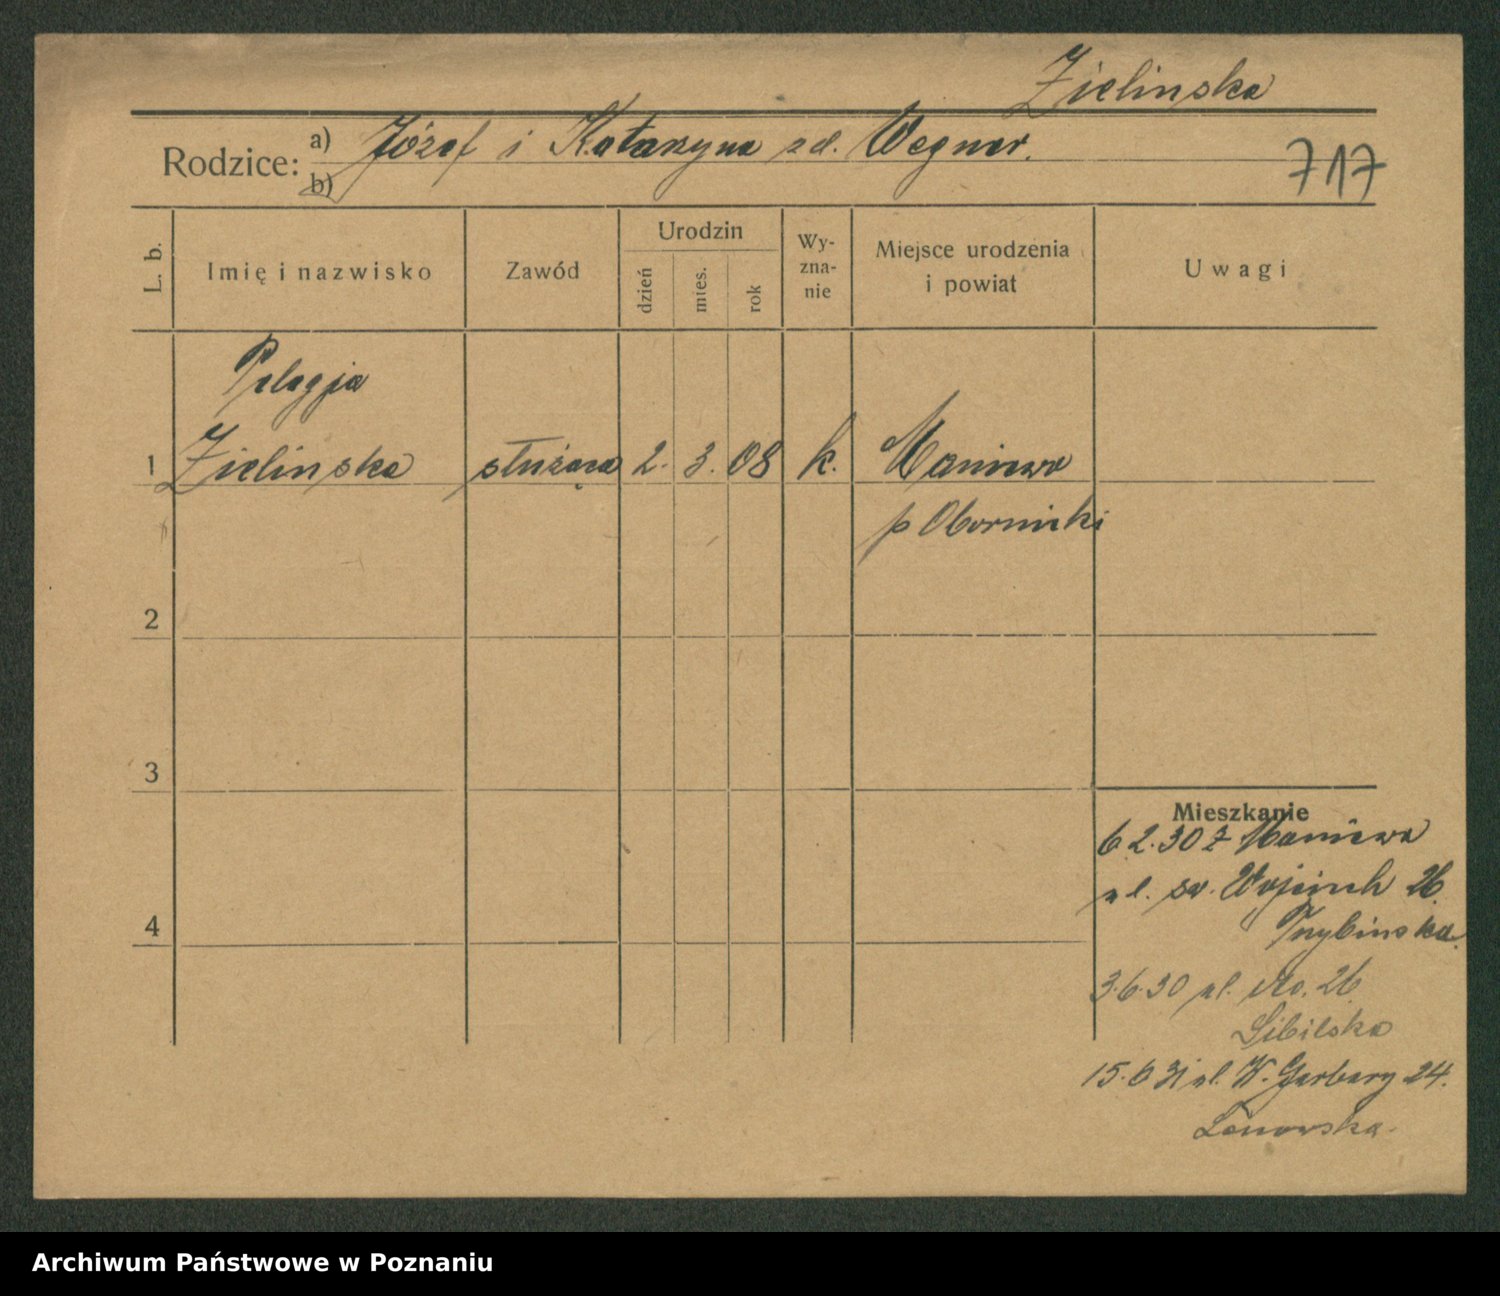 Zielinska
Rodzice: a) Józef i Katarzyna zd. Wegner.
b)
717
L. b.
Imię i nazwisko
Zawód
Urodzin
dzień
mies.
rok
Wy-
zna-
nie
Miejsce urodzenia
i powiat
Uwagi
Pelagja
1 Zielinska służąca 2. 3. 08 k. Maniewo
p Obornicki
2
3
4
Mieszkanie
6.2.30 z Maniewa
ul. św. Wojciech 26.
3.6.30 ul. 26
Sibilska
15.6 31 ul. W. Garbary 24.
Archiwum Państwowe w Poznaniu